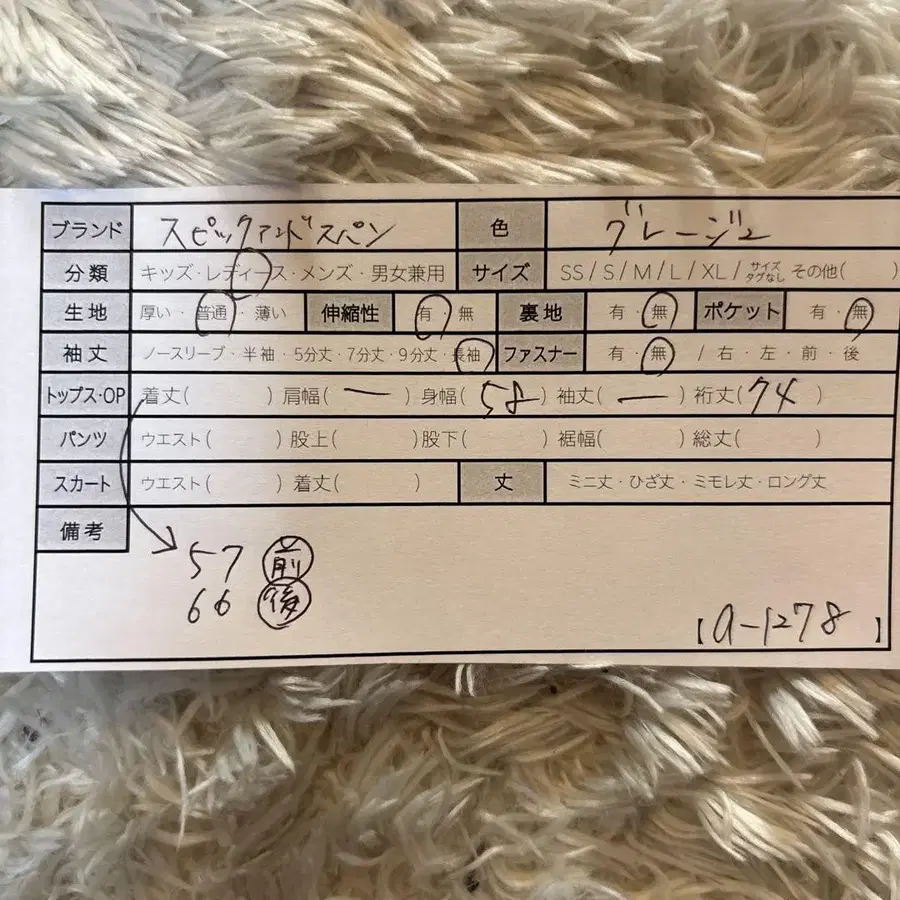 ブランド スピックアンドスパン 色 グレージュ
分類 キッズ・レディース・メンズ・男女兼用 サイズ SS/S/M/L/XL/サイズタグなし その他( )
生地 厚い・普通・薄い 伸縮性 有・無 裏地 有・無 ポケット 有・無
袖丈 ノースリーブ・半袖・5分丈・7分丈・9分丈・長袖 ファスナー 有・無 /右・左・前・後
トップス・OP 着丈( ) 肩幅( ー ) 身幅( 58 ) 袖丈( ー ) 裄丈( 74 )
パンツ ウエスト( ) 股上( ) 股下( ) 裾幅( ) 総丈( )
スカート ウエスト( ) 着丈( ) 丈 ミニ丈・ひざ丈・ミモレ丈・ロング丈
備考
57 前
66 後
【a-1278 】